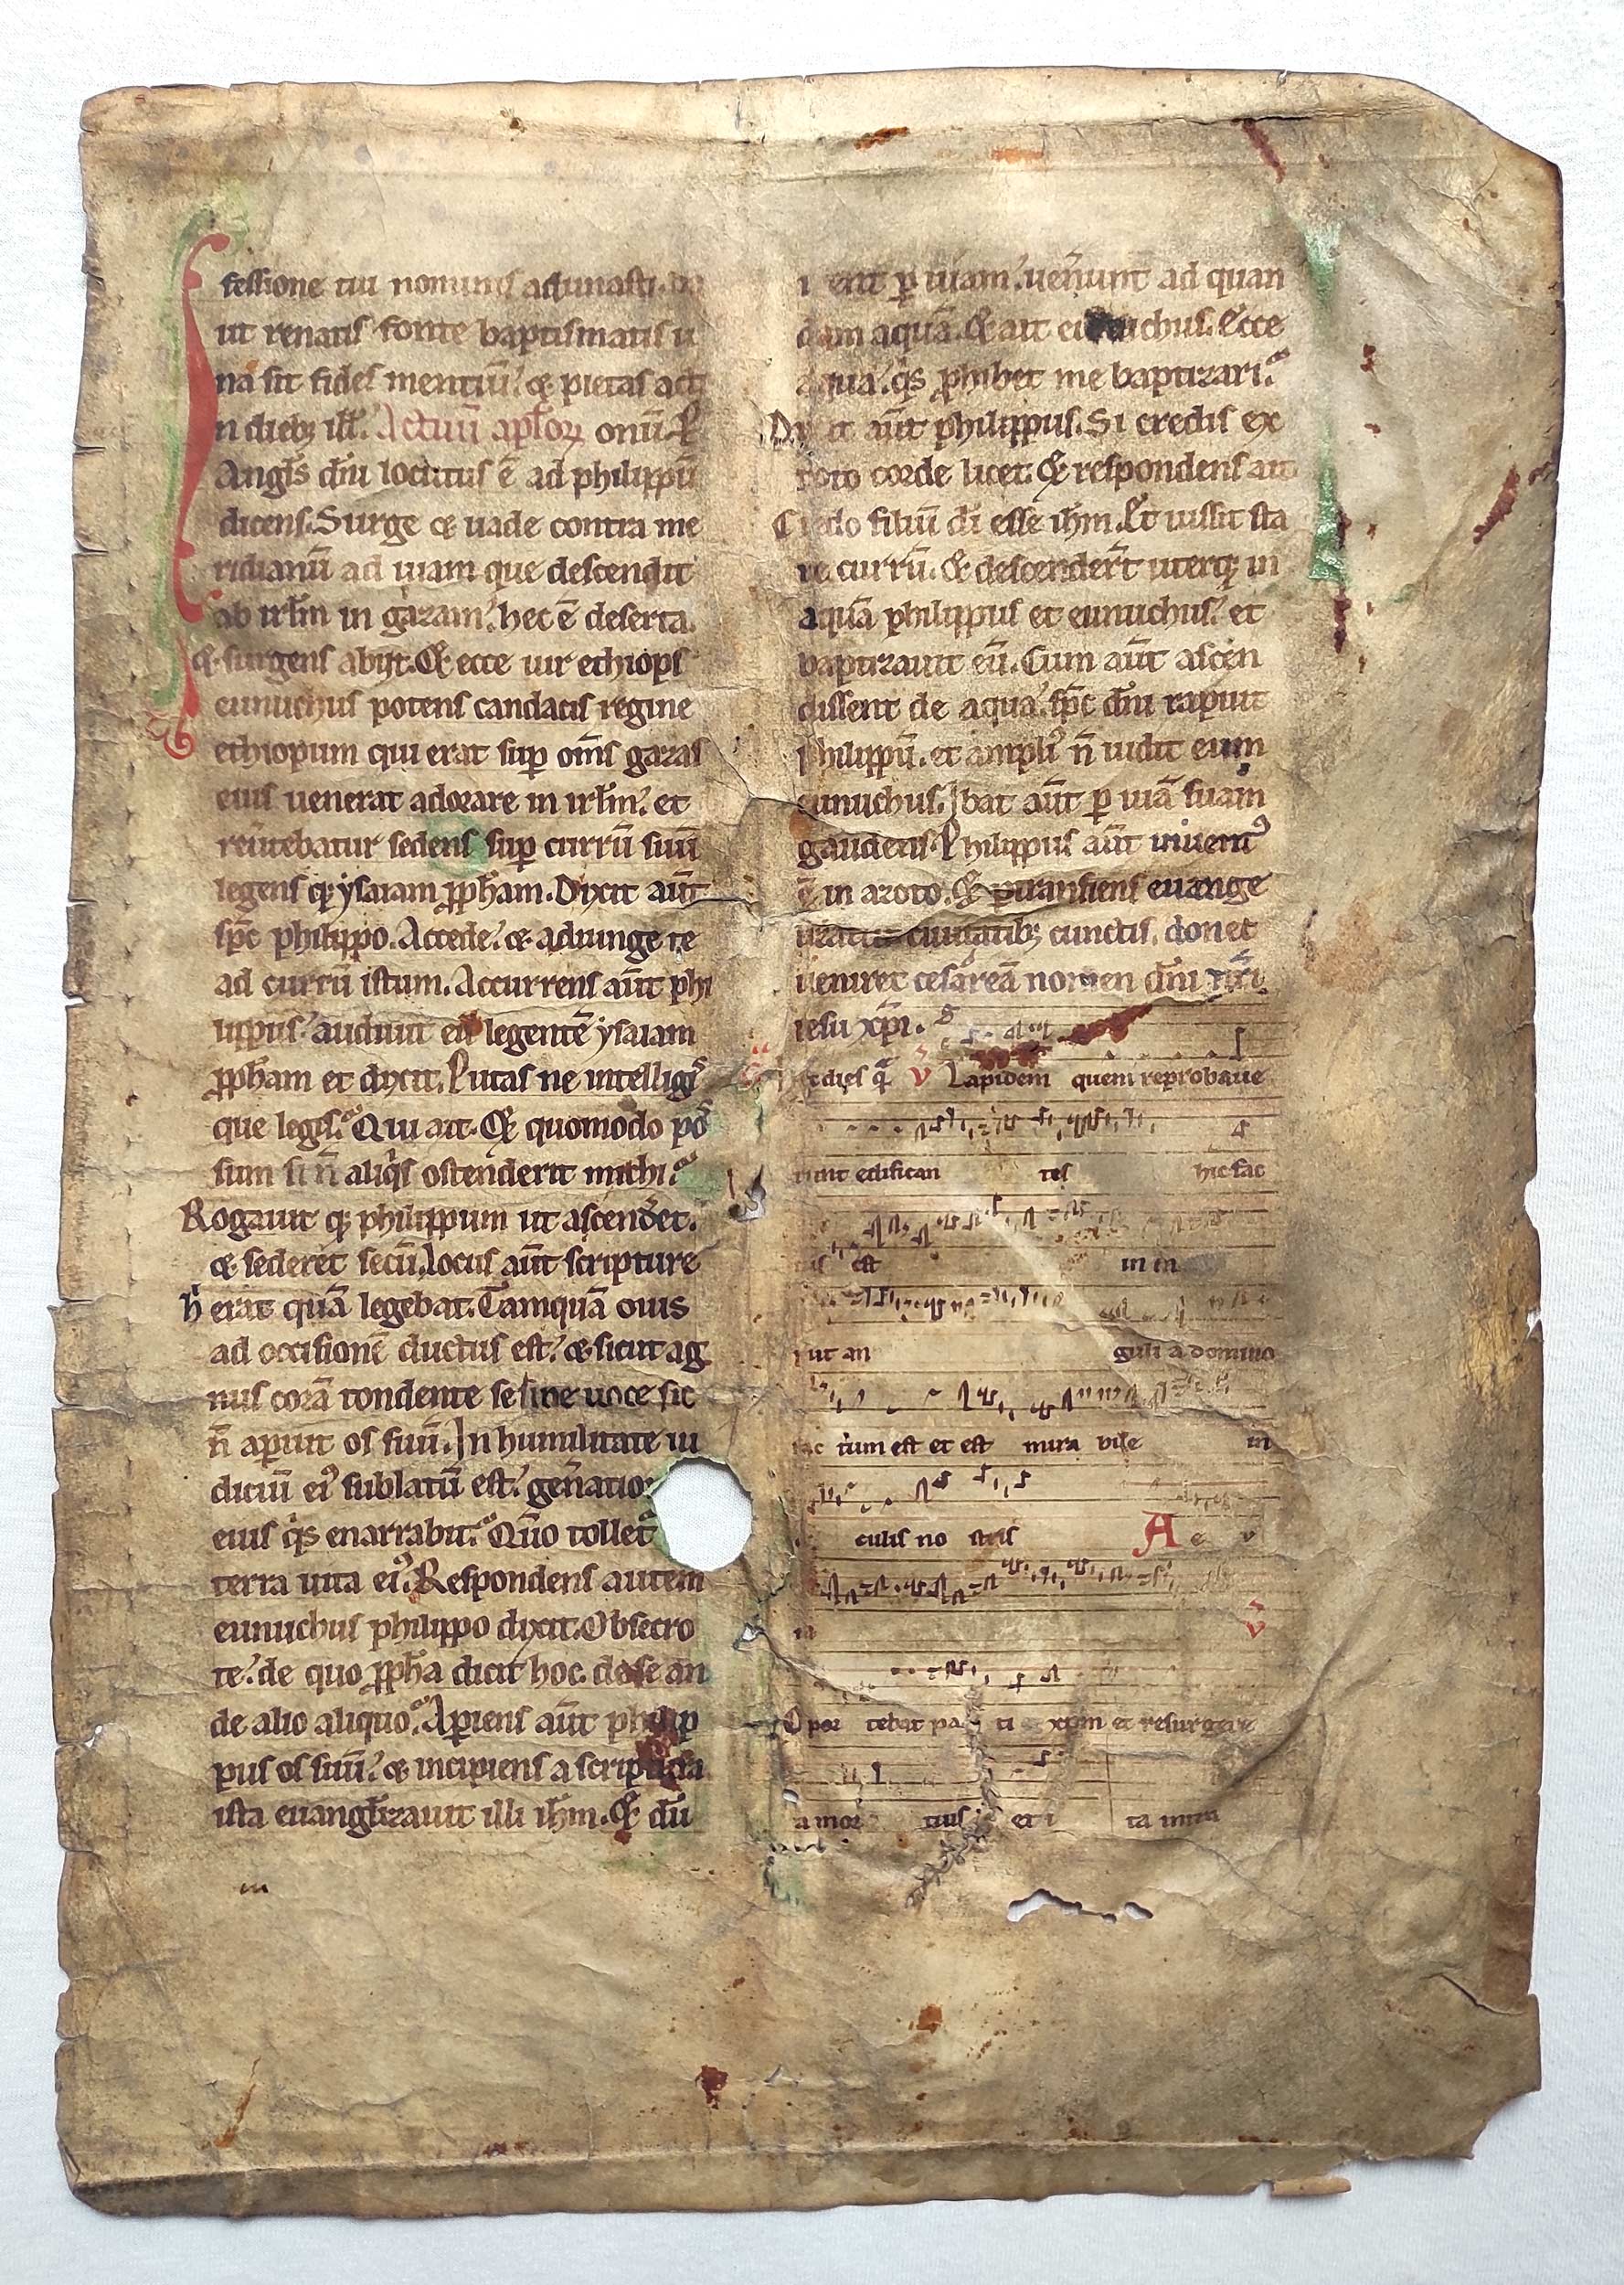 fessione tui nominis adunasti. da
ut renatis fonte baptismatis u
na sit fides mentiū.́ & pietas acti
n dieb; ill̄. Actuū aposto̧ꝝ onū. P
Angl̄s dn̄i locutus ē ad philippū
dicens. Surge & uade contra me
ridianū ad uiam que descendit
ab irl̄m in gazam.́ hec ē deserta.
& surgens abijt. Et ecce uir ethiops
eunuchus potens candacis regine
ethiopum qui erat sup̱ om̄s gazas
eius uenerat adorare in irl̄m.́ et
reu̅tebatur sedens sup̱ currū suū
legens q; ysaiam ꝓph̄am. Dixit aūt
sp̄c philippo. Accede.́ & adiunge te
ad currū istum. Accurrens aūt phi
lippus.́ audiuit eū legentē ysaiam
ꝓph̄am et dixit. Putas ne intelligis
que legis.́ Qui ait. Et quomodo pos
sum si n̄ aliq̇s ostenderit michi.́
Rogauit q; philippum ut ascenderet.
& sederet secū. locus aūt scripture
h̄ erat quā legebat. Tamquā ouis
ad occisionē ductus est.́ & sicut ag
nus corā tondente se sine uoce sic
n̄ aperuit os suū. In humilitate iu
diciū ei᾿ sublatū est.́ gen̄atio
eius q̇s enarrabit.́ Qm̄o tollet᾿
terra uita ei᾿. Respondens autem
eunuchus philippo dixit. Obsecro
te.́ de quo ꝓph̄a dicit hoc. de se an
de alio aliquo.́ Aperiens aūt philip
pus os suū.́ & incipiens a scriptura
ista euangl̄izauit illi ih̄m. Et dū
irent ꝑ uiam.́ uen̄unt ad quan
dam aquā. & ait eunuchus. Ecce
aqua.́ q̇s ꝓhibet me baptizari.́
Dixit aūt philippus. Si credis ex
toto corde licet. Et respondens ait
Credo filiū dī esse ih̄m. Et iussit sta
re currū. & descender̄t uterq; in
aquā philippus et eunuchus.́ et
baptizauit eū. Cum aūt ascen
dissent de aqua.́ sp̄c dn̄i rapuit
philippū. et ampli᾿ n̄ uidit eum
eunuchus. Ibat aūt ꝑ uiā suam
gaudens. Philippus aūt inuent᾿
ē in azoto. & ꝑtransiens euange
lizabat ciuitatib; cunctis. donec
ueniret cesaream nomen dn̄i nr̄i
iesu xp̄i.
dies q̄ v̄ Lapidem quem reprobaue
runt edifican tes hic fac
tus est in
put an guli a domino
fac tum est et est mira bile in
culis no stris A e v
ia v̄
Opor tebat pa ti xp̄m et resurgere
a mor tuis et i ta intra